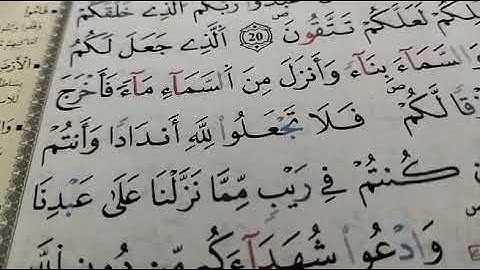 ـبُدُوا۟ رَبَّكُمُ ٱلَّذِى خَلَقَكُمْ
لِكُمْ لَعَلَّكُمْ تَتَّقُونَ 20 ٱلَّذِى جَعَلَ لَكُمُ
وَٱلسَّمَآءَ بِنَآءً وَأَنزَلَ مِنَ ٱلسَّمَآءِ مَآءً فَأَخْرَجَ
زْقًا لَّكُمْ فَلَا تَجْعَلُوا۟ لِلَّهِ أَندَادًا وَأَنتُمْ
كُنتُمْ فِى رَيْبٍ مِّمَّا نَزَّلْنَا عَلَىٰ عَبْدِنَا
وَٱدْعُوا۟ شُهَدَآءَكُم مِّن دُونِ ٱللَّهِ